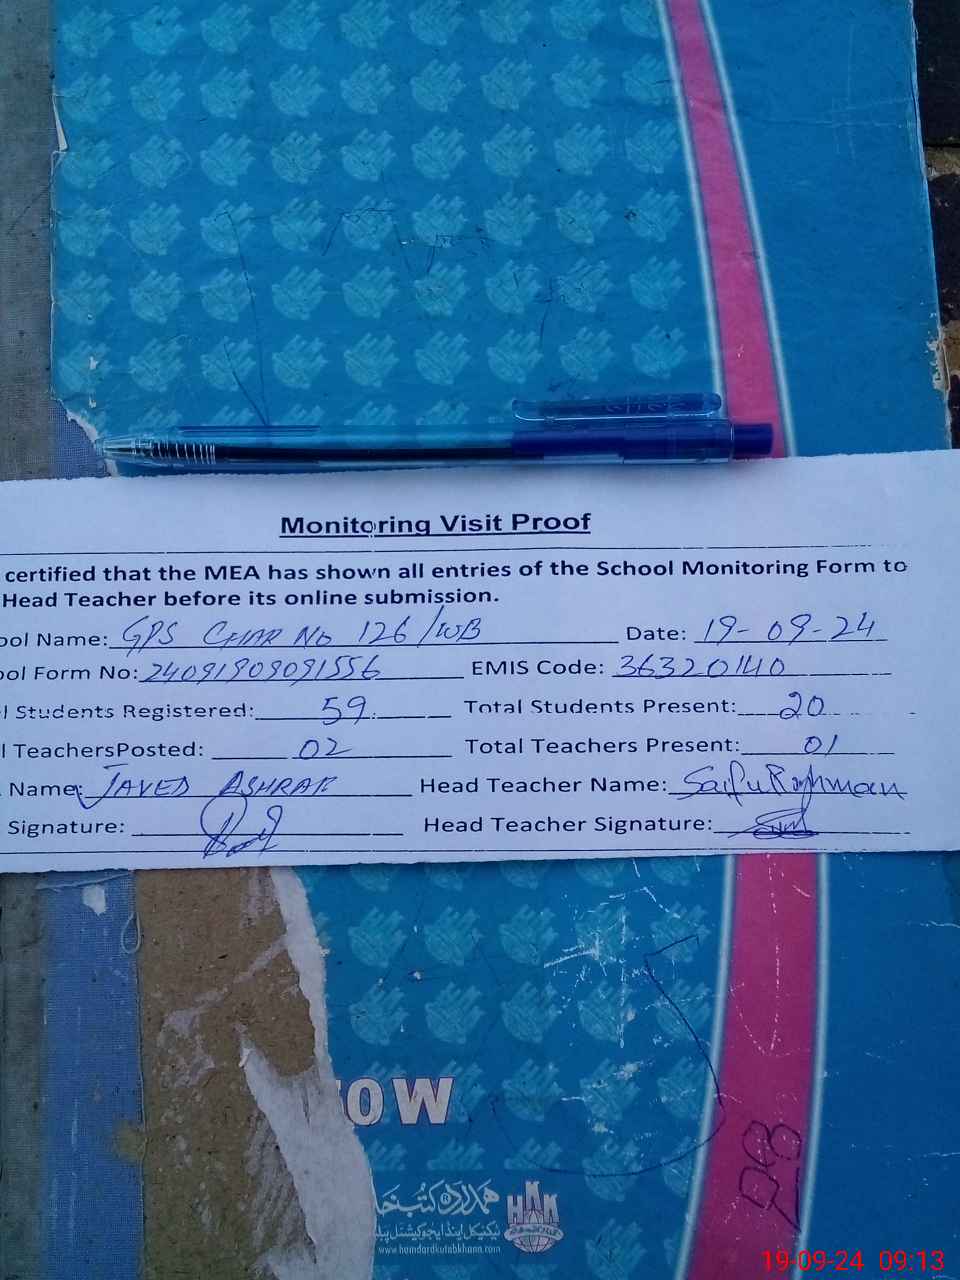 Monitoring Visit Proof
certified that the MEA has shown all entries of the School Monitoring Form to
Head Teacher before its online submission.
ool Name: GPS CHAK No 126/WB Date: 19-09-24
ool Form No: 24091909091556 EMIS Code: 36320140
l Students Registered: 59 Total Students Present: 20
l TeachersPosted: 02 Total Teachers Present: 01
Name: JAVED ASHRAF Head Teacher Name: Saif u Rahman
Signature: Head Teacher Signature:
OW
28
ہمدرد کتب خا
ٹیکنیکل اینڈ ایجوکیشنل پبل
HKK
www.hamdardkutabkhana.com
19-09-24 09:13